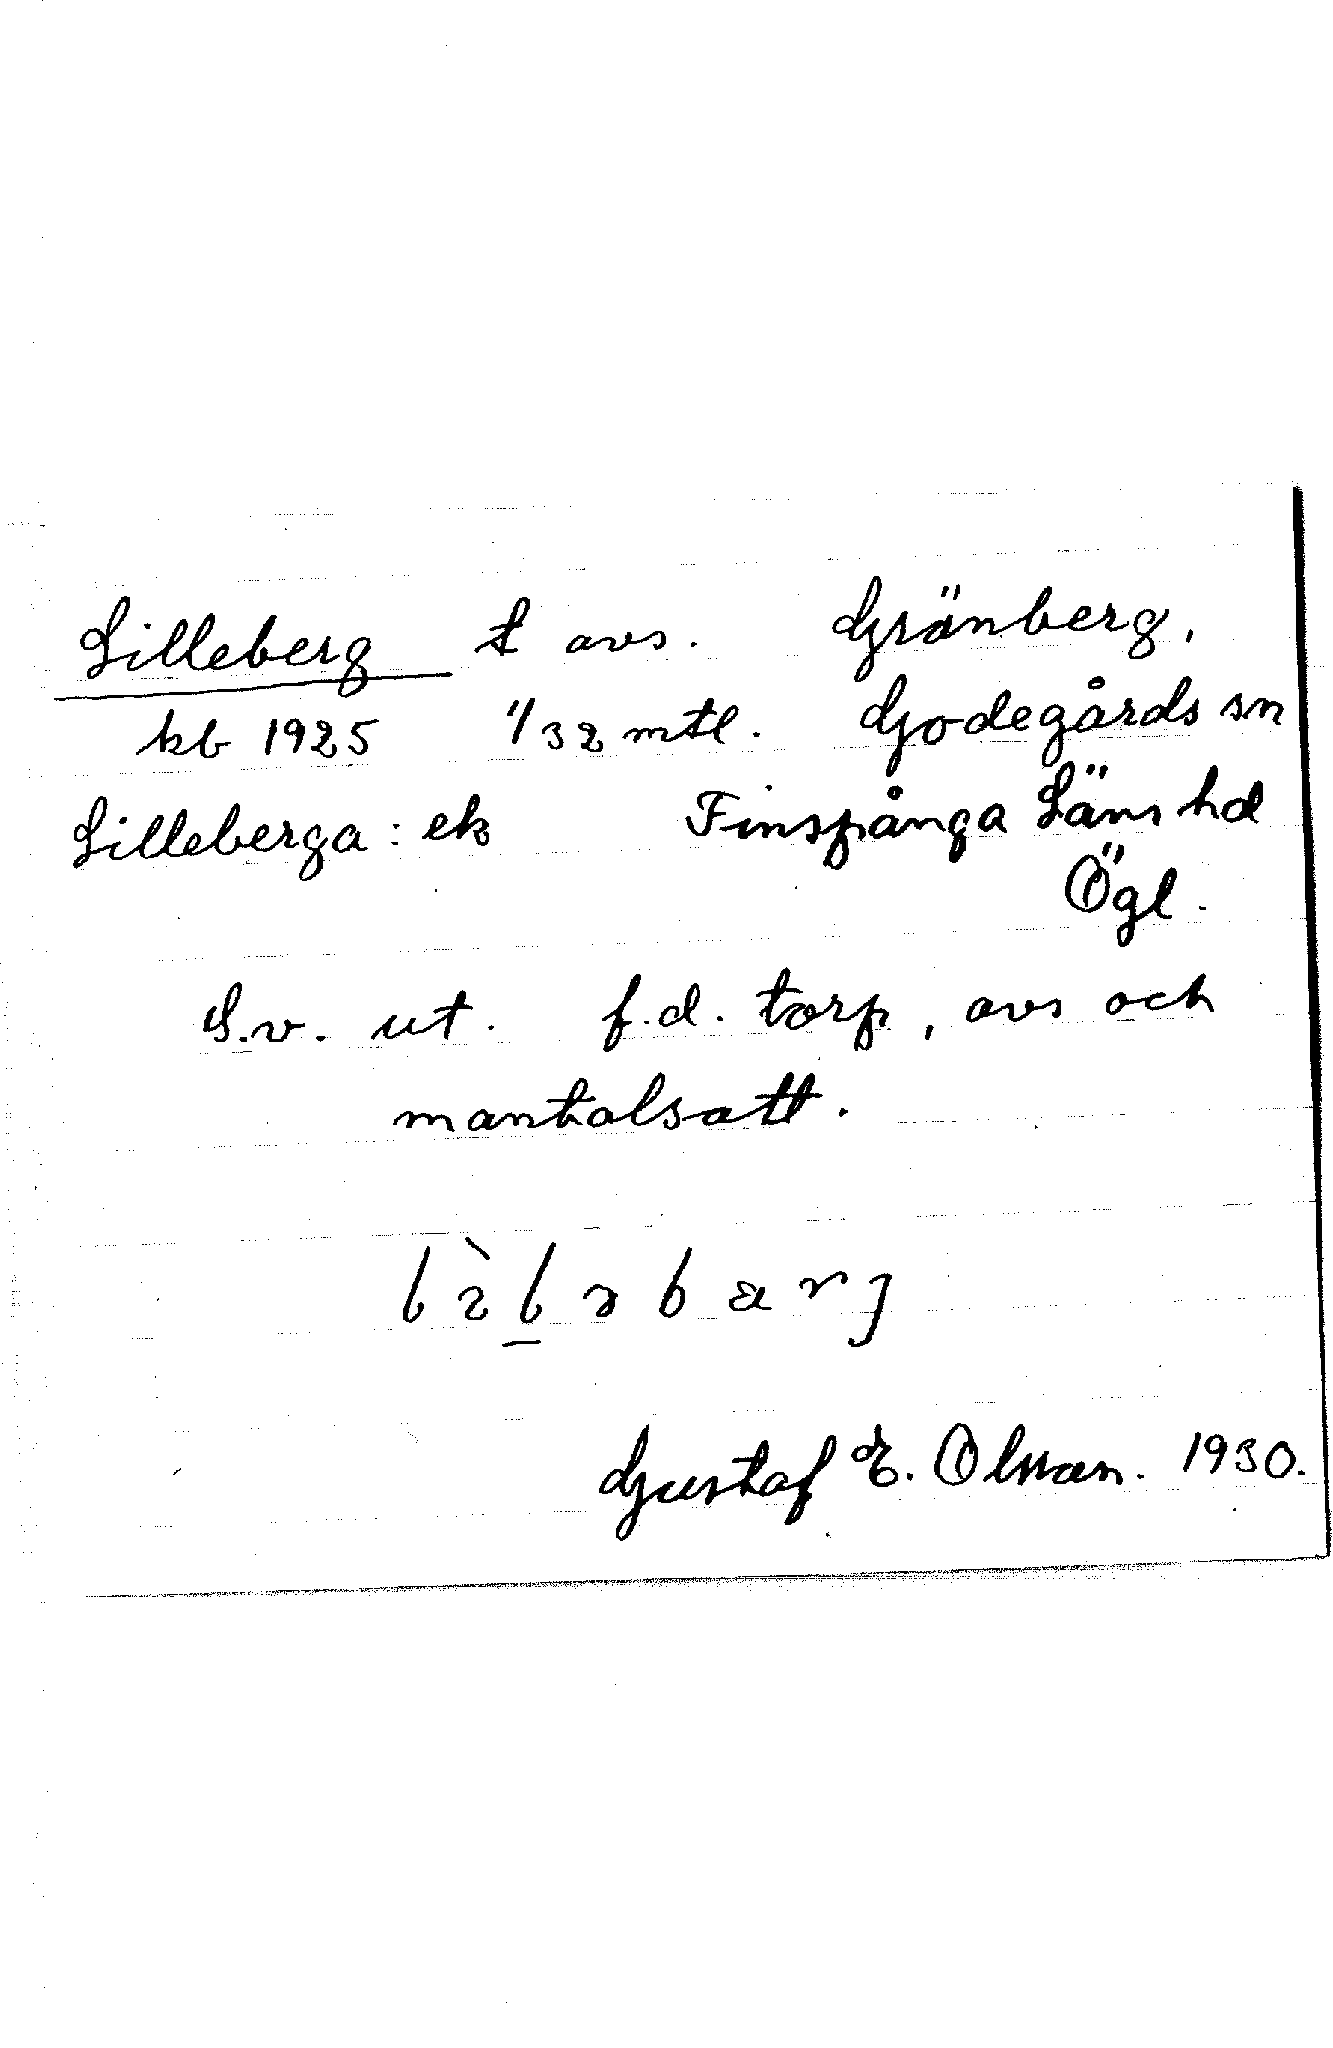 Lilleberg t avs. Gränberg,
kb 1925 1/32 mtl. Godegårds sn
Lilleberga: ek Finspånga Läns hd
Ögl.
S.v. ut. f.d. torp, avs och
mantalsatt.
Gustaf E. Olsson. 1930.